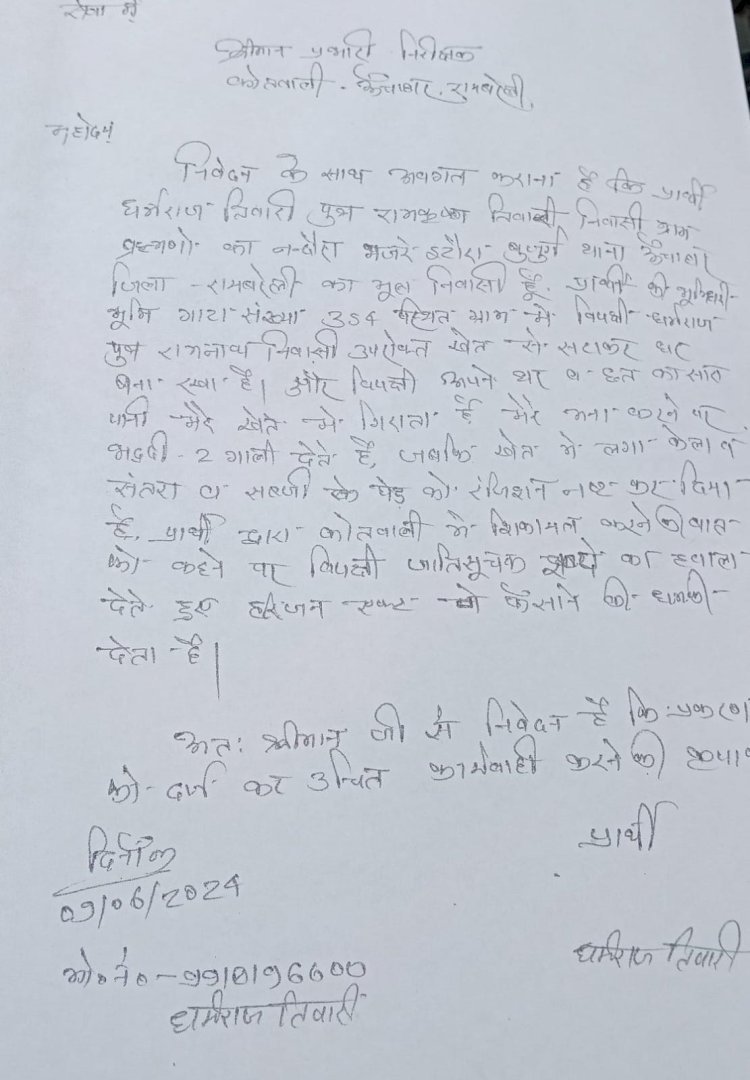 सेवा में
श्रीमान प्रभारी निरीक्षक
कोतवाली - ऊँचाहार, रायबरेली,
महोदय
निवेदन के साथ अवगत कराना है कि प्रार्थी
धर्मराज तिवारी पुत्र रामकृष्ण तिवारी निवासी ग्राम
का मजरे इटौरा बुजुर्ग थाना ऊँचाहार
जिला - रायबरेली का मूल निवासी हूँ. प्रार्थी की भूमिधरी
भूमि गाटा संख्या 354 स्थित ग्राम में विपक्षी धर्मराज
पुत्र रामनाथ निवासी उपरोक्त खेत से सटाकर घर
बना रखा है। और विपक्षी अपने घर व छत का सारा
पानी मेरे खेत में गिराता है मेरे मना करने पर
भद्दी - 2 गाली देते है, जबकि खेत में लगा केला व
संतरा व सब्जी के पेड़ को रंजिशन नष्ट कर दिया
है, प्रार्थी द्वारा कोतवाली में शिकायत करने की बात
को कहने पर विपक्षी जातिसूचक शब्दो का हवाला
देते हुए हरिजन एक्ट में फँसाने की धमकी
देता है|
अतः श्रीमान जी से निवेदन है कि प्रकरण
को दर्ज कर उचित कार्यवाही करने की कृपा
प्रार्थी
दिनाँक
09/06/2024
मो० नं० - 9910196600
धर्मराज तिवारी
धर्मराज तिवारी